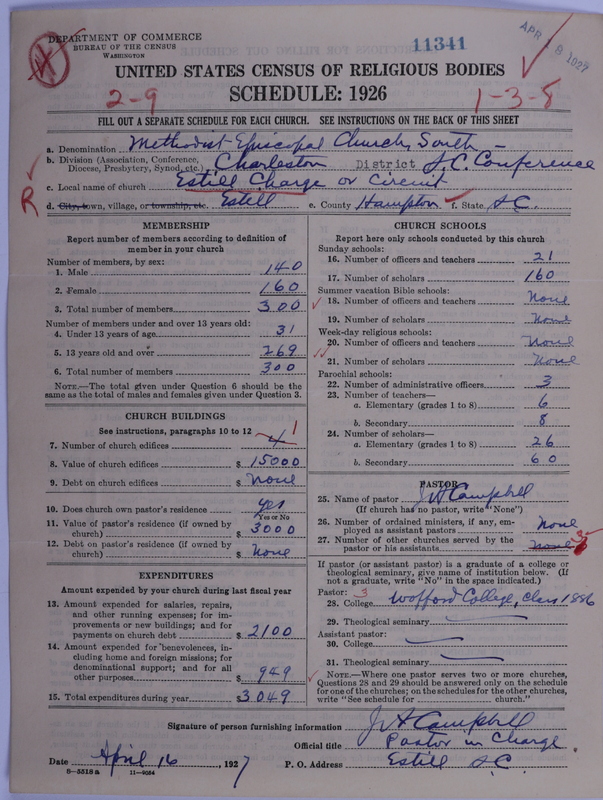 DEPARTMENT OF COMMERCE
BUREAU OF THE CENSUS
WASHINGTON
11341
APR 8 1927
UNITED STATES CENSUS OF RELIGIOUS BODIES
SCHEDULE: 1926
2-9
1-3-8
FILL OUT A SEPARATE SCHEDULE FOR EACH CHURCH. SEE INSTRUCTIONS ON THE BACK OF THIS SHEET
a. Denomination Methodist Episcopal Church, South
b. Division (Association, Conference, Diocese, Presbytery, Synod, etc.) Charleston District S.C. Conference
c. Local name of church Estill Charge or Circuit
R
d. City, town, village, or township, etc. Estill e. County Hampton f. State S C.
MEMBERSHIP
Report number of members according to definition of
member in your church
Number of members, by sex:
1. Male 140
2. Female 160
3. Total number of members 300
Number of members under and over 13 years old:
4. Under 13 years of age 31
5. 13 years old and over 269
6. Total number of members 300
NOTE.—The total given under Question 6 should be the
same as the total of males and females given under Question 3.
CHURCH BUILDINGS
See instructions, paragraphs 10 to 12
7. Number of church edifices 4 1
8. Value of church edifices $ 15000
9. Debt on church edifices $ None
10. Does church own pastor's residence yes
Yes or No
11. Value of pastor's residence (if owned by
church) $ 3000
12. Debt on pastor's residence (if owned by
church) $ None
EXPENDITURES
Amount expended by your church during last fiscal year
13. Amount expended for salaries, repairs,
and other running expenses; for im-
provements or new buildings; and for
payments on church debt $ 2100
14. Amount expended for benevolences, in-
cluding home and foreign missions; for
denominational support; and for all
other purposes $ 949
15. Total expenditures during year $ 3049
CHURCH SCHOOLS
Report here only schools conducted by this church
Sunday schools:
16. Number of officers and teachers 21
17. Number of scholars 160
Summer vacation Bible schools:
18. Number of officers and teachers None
19. Number of scholars None
Week-day religious schools:
20. Number of officers and teachers None
21. Number of scholars None
Parochial schools:
22. Number of administrative officers 3
23. Number of teachers—
a. Elementary (grades 1 to 8) 6
b. Secondary 8
24. Number of scholars—
a. Elementary (grades 1 to 8) 26
b. Secondary 60
PASTOR
25. Name of pastor J A Campbell
(If church has no pastor, write "None")
26. Number of ordained ministers, if any, em-
ployed as assistant pastors None
27. Number of other churches served by the
pastor or his assistants None 3
If pastor (or assistant pastor) is a graduate of a college or
theological seminary, give name of institution below. (If
not a graduate, write "No" in the space indicated.)
Pastor: 3
28. College Wofford College, Class 1886
29. Theological seminary
Assistant pastor:
30. College
31. Theological seminary
NOTE.—Where one pastor serves two or more churches,
Questions 28 and 29 should be answered only on the schedule
for one of the churches; on the schedules for the other churches,
write "See schedule for church."
Signature of person furnishing information J A Campbell
Official title Pastor in Charge
Date April 16, 1927 P. O. Address Estill S C
8—5518 a 11—9054